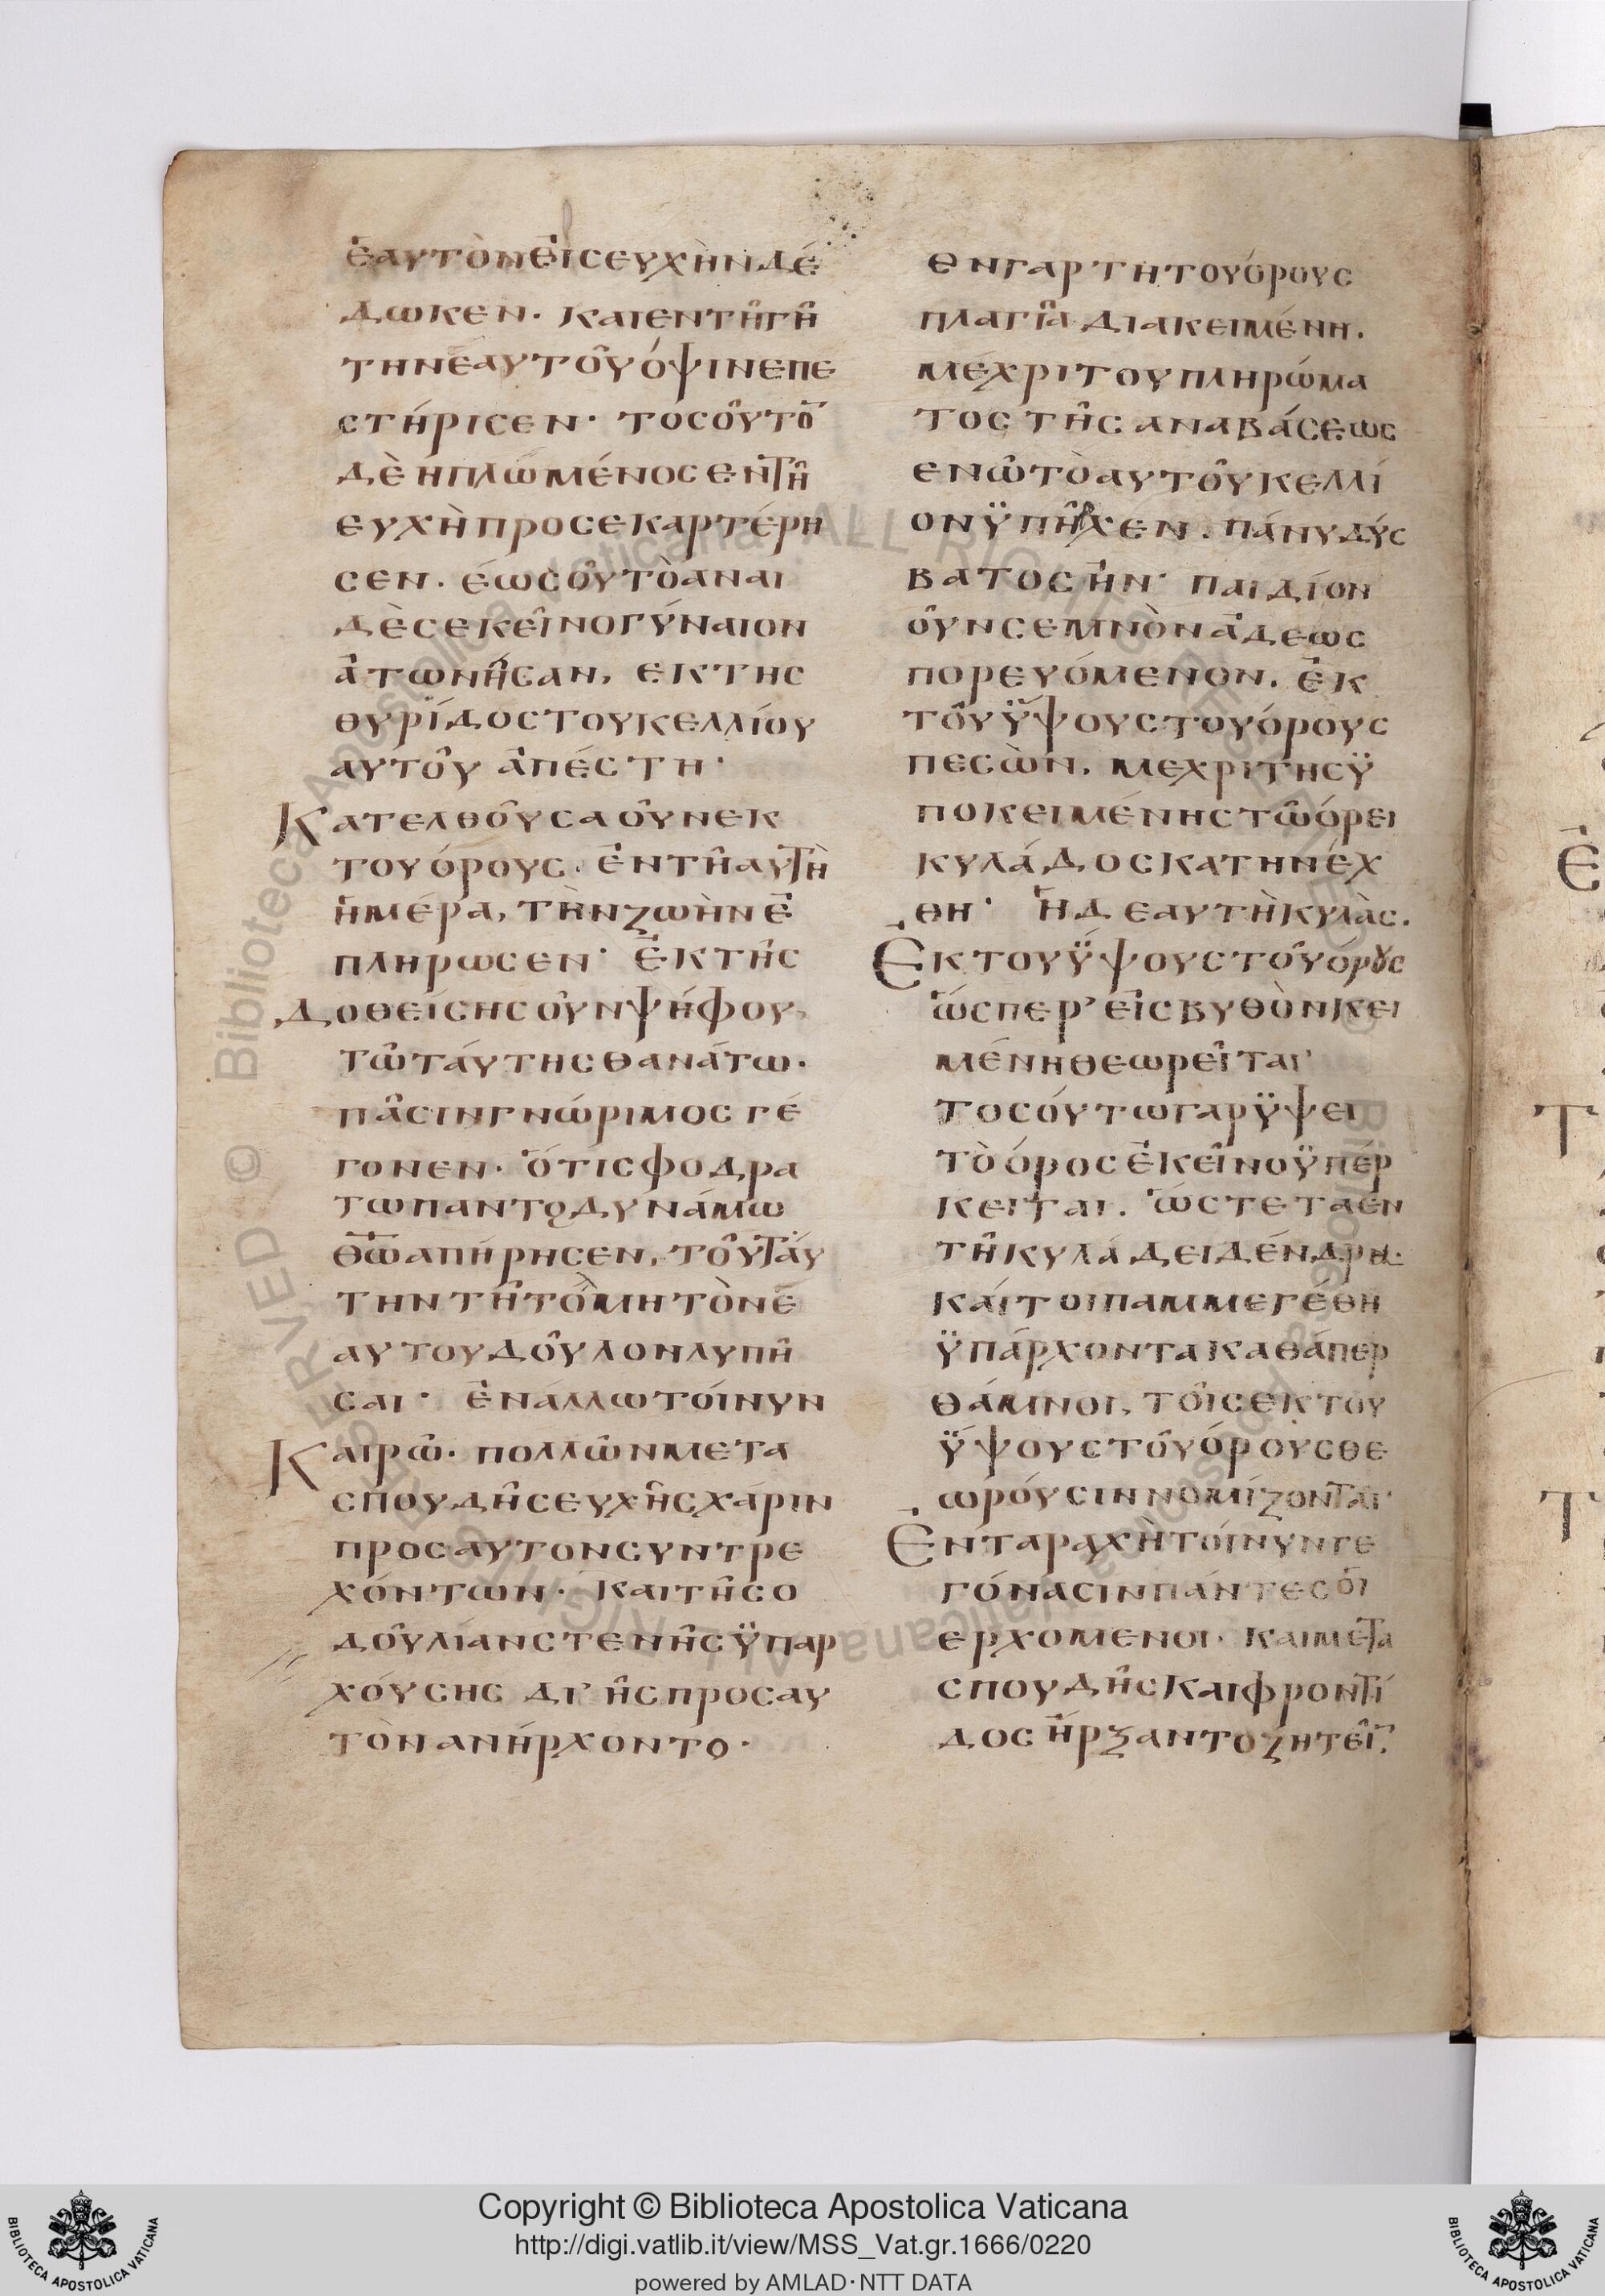 ἑαυτὸν εἰς εὐχὴν δέ
δωκεν· καὶ ἐν τῆ γῆ
την ἑαυτοῦ όψιν επε
στήρισεν· τοσοῦτο̅
δὲ ηπλωμένος εν τῆ
ευχῆ προσεκαρτέρη
σεν. έως οὗ τὸ αναι
δὲς εκεῖνο γύναιον
ἀτωνῆσαν, εκ της
θυρίδος του κελλίου
αυτοῦ ἀπέστη·
Κατελθοῦσα οῦν εκ
του όρους. ἐν τῆ αυτῆ
ἡμέρα, τὴν ζωὴν ἐ
πλήρωσεν· Ἐκ τῆς
δοθείσης οῦν ψήφου
τῶ ταύτης θανάτω.
πᾶσιν γνώριμος γέ
γονεν. ὅτι σφόδρα
τω παντοδυνάμω
θ̅ω̅ απήρησεν, τοῦ ταύ
την τῆ τόλμη τὸν ἑ
αυτου δοῦλον λυπῆ
σαι· ἐν άλλω τοίνυν
Καιρῶ. πολλῶν μετα
σπουδῆς ευχῆς χάριν
προς αυτον συντρε
χόντων. Και τῆς ο
δοῦ λίαν στενῆς ϋπαρ
χούσης δι' ῆς προς αυ
τὸν ανήρχοντο·
εν γαρ τη του όρους
πλαγία διακειμένη.
μέχρι του πληρώμα
τος τῆς αναβάσεως
εν ῶ τὸ αυτοῦ κελλί
ον ϋπῆρχεν. πάνυ δύς
βατος ῆν· παιδίον
οῦν σεμνὸν ἀδεῶς
πορευόμενον. ἐκ
τοῦ ϋψους του όρους
πεσὼν. μεχρι της ϋ
ποκειμένης τῶ όρει
κυλάδος κατηνέχ
θη· Ἡ δε αυτὴ κυλὰς.
Ἐκ του ϋψους τοῦ όρους
ὥσπερ εἰς βυθὸν κει
μένη θεωρεῖται·
τοσούτω γαρ ϋψει
τὸ όρος ἐκεῖνο ϋπέρ
κειται. ὥστε τα ἐν
τῆ κυλάδει δένδρη.
καίτοι παμμεγέθη
ϋπάρχοντα καθάπερ
θάμνοι, τοῖς εκ του
ϋψους τοῦ όρους θε
ωρούσιν νομίζονται·
Ἐν ταραχῆ τοίνυν γε
γόνασιν πάντες οἱ
ερχομενοι. Και μετα
σπουδῆς και φροντί
δος ἤρξαντο ζητεῖ̅.
Copyright © Biblioteca Apostolica Vaticana
http://digi.vatlib.it/view/MSS_Vat.gr.1666/0220
powered by AMLAD·NTT DATA
BIBLIOTECA APOSTOLICA VATICANA
BIBLIOTECA APOSTOLICA VATICANA